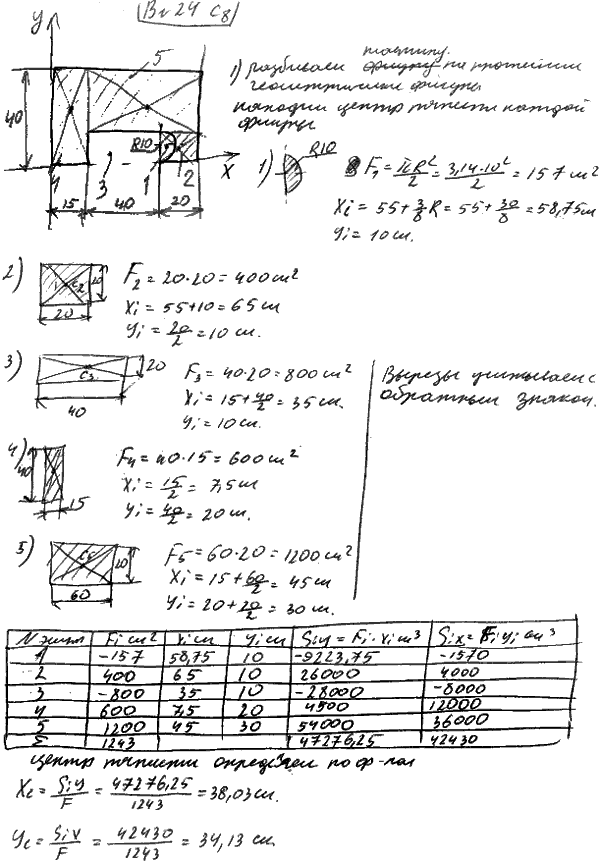 Вг 24 С8
y
5
40
R10
x
4
3
1
2
15
40
20
1) разбиваем пластину на простейшие
геометрические фигуры
находим центр тяжести каждой
фигуры
1)
R10
F₁ = πR²/2 = 3,14·10²/2 = 157 см²
Xi = 55 + 3/8 R = 55 + 30/8 = 58,75 см
yi = 10 см.
2)
C2
20
F₂ = 20·20 = 400 см²
Xi = 55+10 = 65 см
yi = 20/2 = 10 см.
3)
C3
20
40
F₃ = 40·20 = 800 см²
Xi = 15 + 40/2 = 35 см.
yi = 10 см.
Вырезы учитываем с
обратным знаком.
4)
40
15
F₄ = 40·15 = 600 см²
Xi = 15/2 = 7,5 см
yi = 40/2 = 20 см.
5)
20
60
F₅ = 60·20 = 1200 см²
Xi = 15 + 60/2 = 45 см
yi = 20 + 20/2 = 30 см.
Fi см² Xi см yi см Siy = Fi·xi см³ Six = Fi yi см³
1 -157 58,75 10 -9223,75 -1570
2 400 65 10 26000 4000
3 -800 35 10 -28000 -8000
4 600 7,5 20 4500 12000
5 1200 45 30 54000 36000
Σ 1243 47276,25 42430
центр тяжести определяем по ф-лам
Xc = Siy/F = 47276,25/1243 = 38,03 см.
Yc = Six/F = 42430/1243 = 34,13 см.